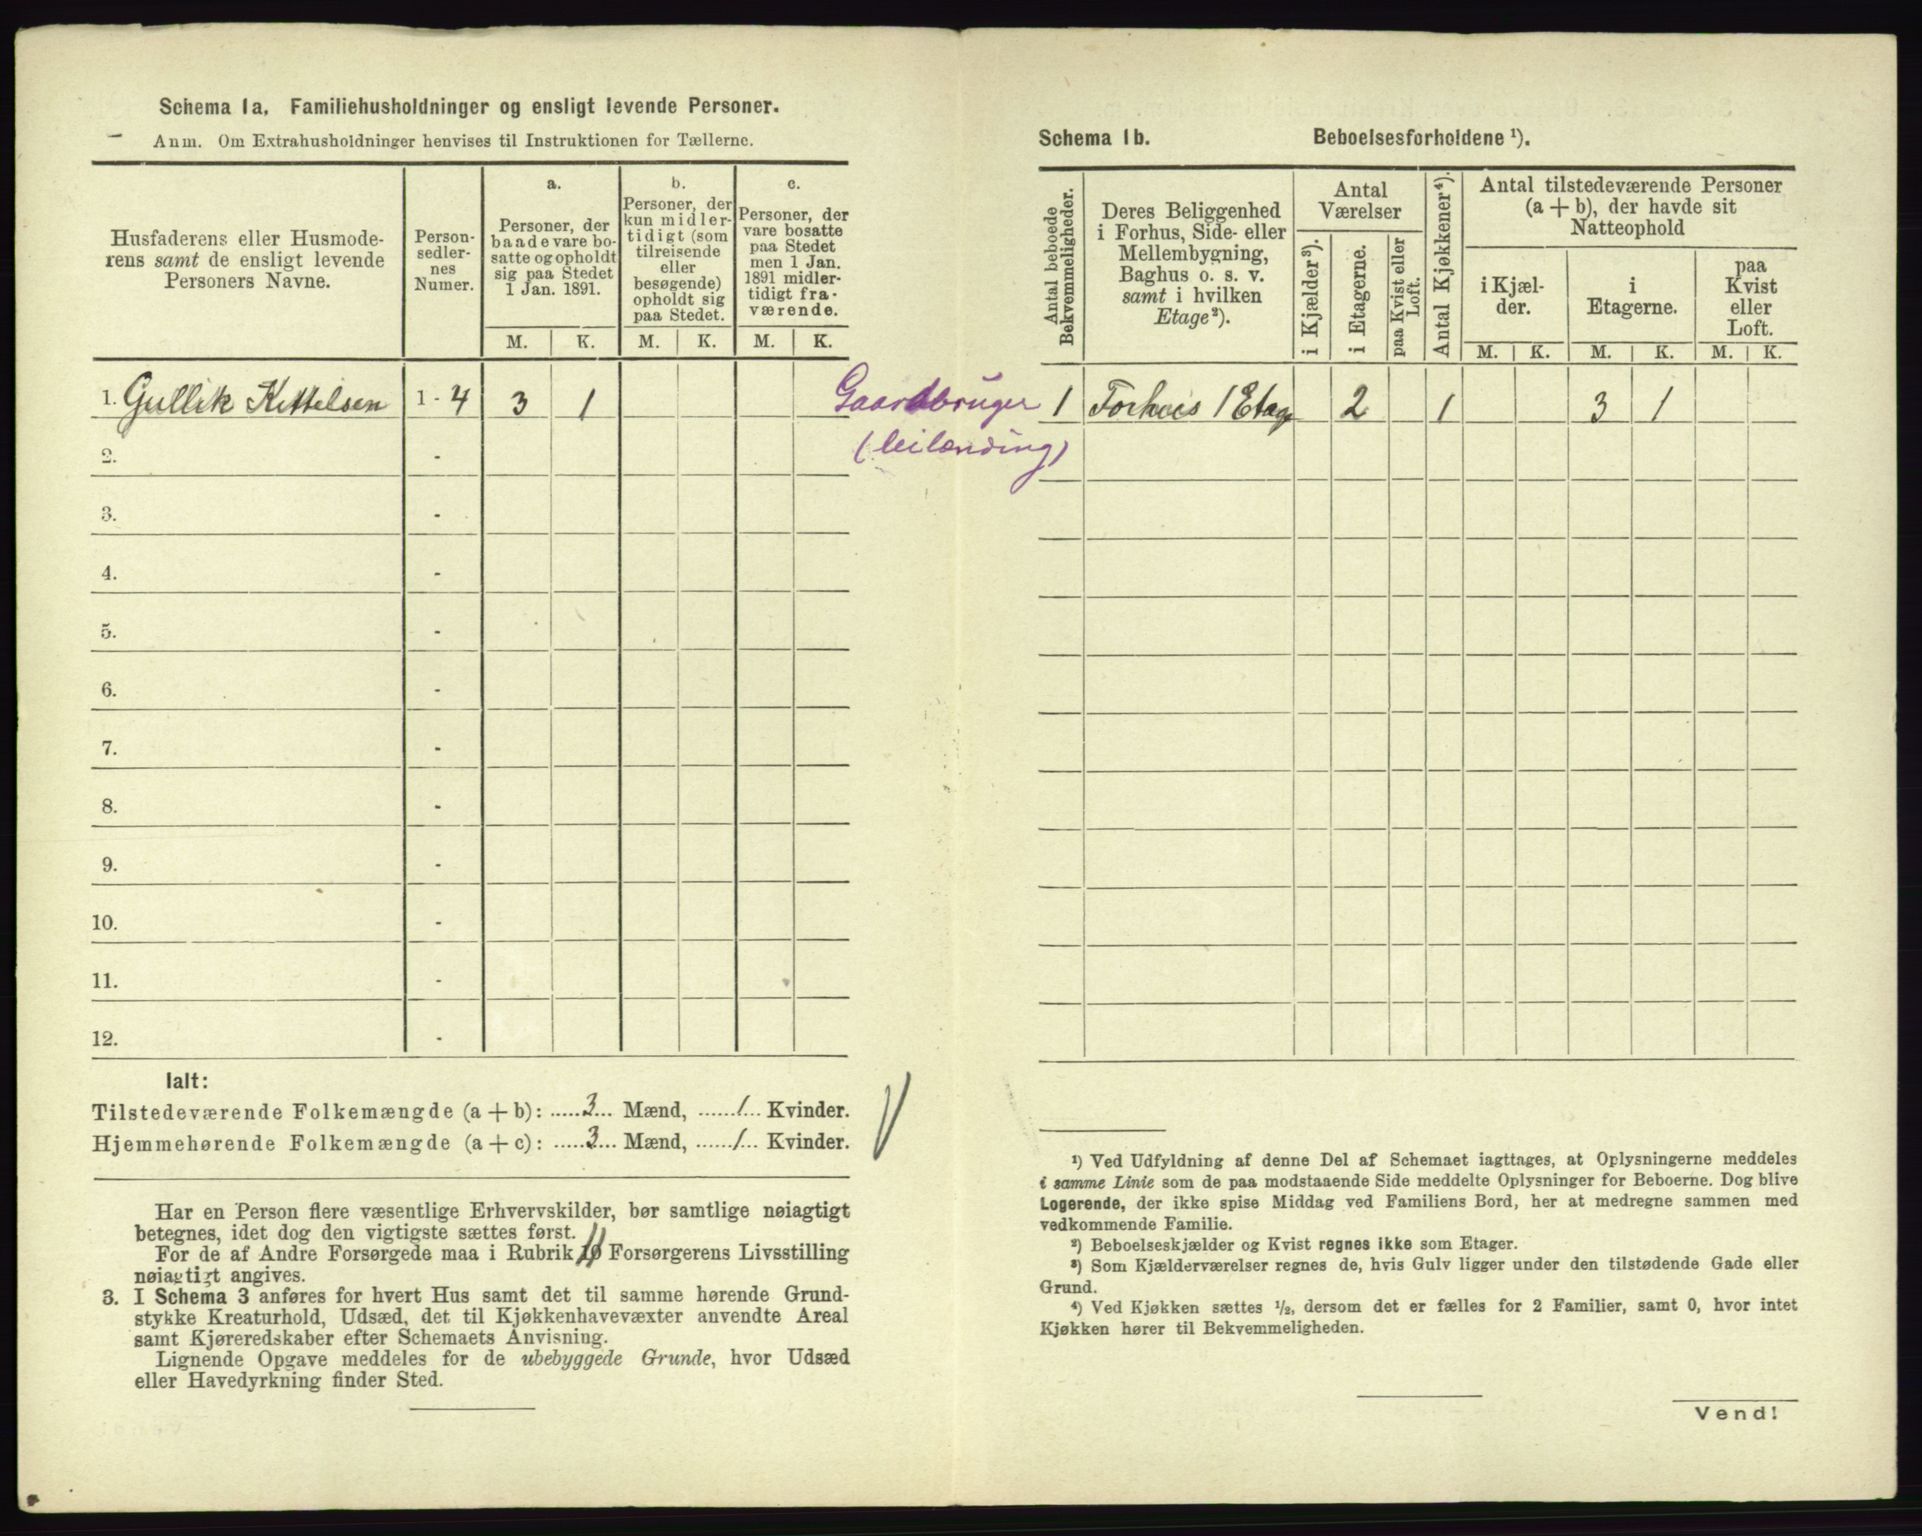 Schema 1a. Familiehusholdninger og ensligt levende Personer.
Anm. Om Extrahusholdninger henvises til Instruktionen for Tællerne.
Husfaderens eller Husmode-
rens samt de ensligt levende
Personers Navne.
Person-
sedler-
nes
Numer.
a.
Personer, der
baade vare bo-
satte og opholdt
sig paa Stedet
1 Jan. 1891.
b.
Personer, der
kun midler-
tidigt (som
tilreisende
eller
besøgende)
opholdt sig
paa Stedet.
c.
Personer, der
vare bosatte
paa Stedet
men 1 Jan.
1891 midler-
tidigt fra-
værende.
M. K. M. K. M. K.
1. Gullik Kittelsen 1 - 4 3 1
2. -
3. -
4. -
5. -
6. -
7. -
8. -
9. -
10. -
11. -
12. -
Ialt:
Tilstedeværende Folkemængde (a + b): ......3... Mænd, ......1... Kvinder.
Hjemmehørende Folkemængde (a + c): ......3... Mænd, ......1... Kvinder.
Har en Person flere væsentlige Erhvervskilder, bør samtlige nøiagtigt
betegnes, idet dog den vigtigste sættes først.
For de af Andre Forsørgede maa i Rubrik 11 Forsørgerens Livsstilling
nøiagtigt angives.
3. I Schema 3 anføres for hvert Hus samt det til samme hørende Grund-
stykke Kreaturhold, Udsæd, det til Kjøkkenhavevæxter anvendte Areal
samt Kjøreredskaber efter Schemaets Anvisning.
Lignende Opgave meddeles for de ubebyggede Grunde, hvor Udsæd
eller Havedyrkning finder Sted.
Gaardbruger
(leilænding)
Schema 1b. Beboelsesforholdene ¹).
Antal beboede
Bekvemmeligheder.
Deres Beliggenhed
i Forhus, Side- eller
Mellembygning,
Baghus o. s. v.
samt i hvilken
Etage²).
Antal
Værelser
i Kjælder³).
i Etagerne.
paa Kvist eller
Loft.
Antal Kjøkkener⁴).
Antal tilstedeværende Personer
(a + b), der havde sit
Natteophold
i Kjæl-
der.
i
Etagerne.
paa
Kvist
eller
Loft.
M. K. M. K. M. K.
1 Forhus 1 Etage 2 1 3 1
¹) Ved Udfyldning af denne Del af Schemaet iagttages, at Oplysningerne meddeles
i samme Linie som de paa modstaaende Side meddelte Oplysninger for Beboerne. Dog blive
Logerende, der ikke spise Middag ved Familiens Bord, her at medregne sammen med
vedkommende Familie.
²) Beboelseskjælder og Kvist regnes ikke som Etager.
³) Som Kjælderværelser regnes de, hvis Gulv ligger under den tilstødende Gade eller
Grund.
⁴) Ved Kjøkken sættes ½, dersom det er fælles for 2 Familier, samt 0, hvor intet
Kjøkken hører til Bekvemmeligheden.
Vend!